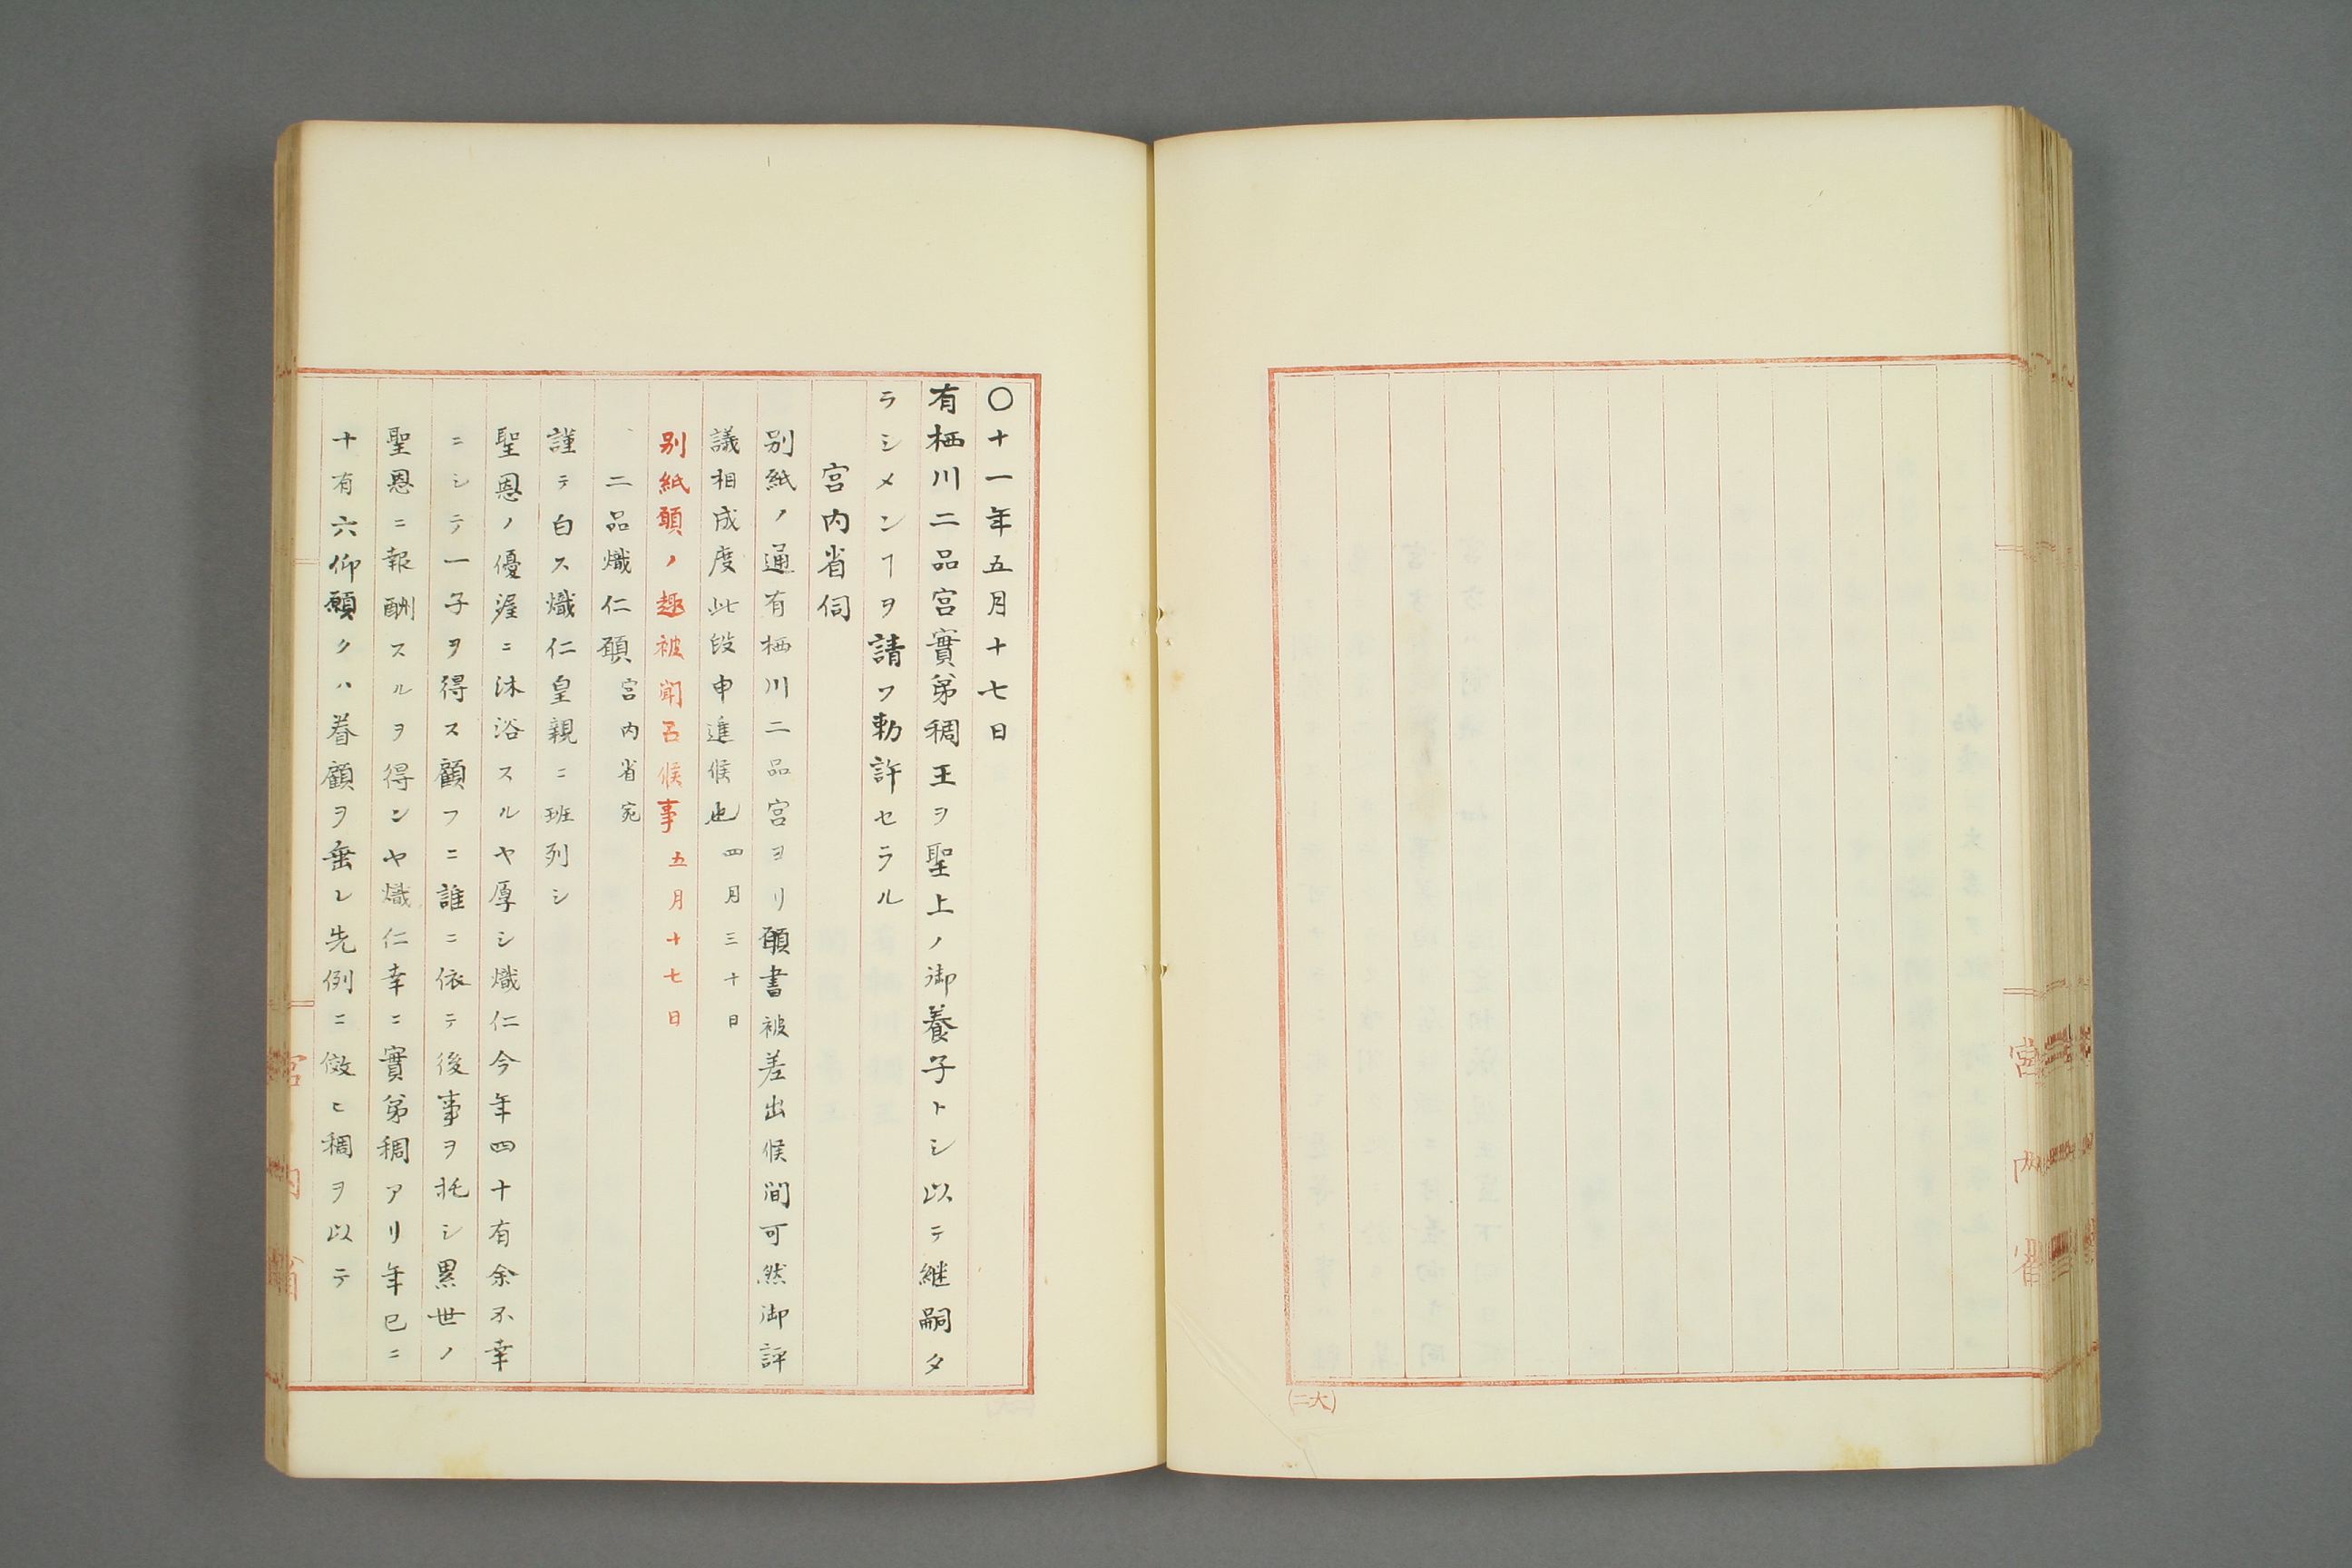 〇十一年五月十七日
有栖川二品宮實弟稠王ヲ聖上ノ御養子トシ以テ継嗣タ
ラシメンヿヲ請フ勅許セラル
宮内省伺
別紙ノ通有栖川二品宮ヨリ願書被差出候間可然御評
議相成度此段申進候也 四月三十日
別紙願ノ趣被聞召候事 五月十七日
二品熾仁願 宮内省宛
謹テ白ス熾仁皇親ニ班列シ
聖恩ノ優渥ニ沐浴スルヤ厚シ熾仁今年四十有余不幸
ニシテ一子ヲ得ス顧フニ誰ニ依テ後事ヲ托シ累世ノ
聖恩ニ報酬スルヲ得ンヤ熾仁幸ニ實弟稠アリ年已ニ
十有六仰願クハ眷顧ヲ垂レ先例ニ傚ヒ稠ヲ以テ
宮内省
宮内省
(大二)